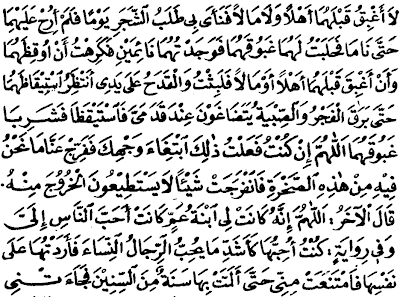 لاَ أَغْبِقُ قَبْلَهُمَا أَهْلاً وَلَا مَالاً فَنَأَى بِى طَلَبُ الشَّجَرِ يَوْمًا فَلَمْ أُرِحْ عَلَيْهِمَا
حَتَّى نَامَا فَحَلَبْتُ لَهُمَا غَبُوقَهُمَا فَوَجَدْتُهُمَا نَائِمَيْنِ فَكَرِهْتُ أَنْ أُوقِظَهُمَا
وَأَنْ أَغْبِقَ قَبْلَهُمَا أَهْلاً أَوْ مَالاً فَلَبِثْتُ وَالْقَدَحُ عَلَى يَدِى أَنْتَظِرُ اسْتِيْقَاظَهُمَا
حَتَّى بَرَقَ الْفَجْرُ وَالصِّبْيَةُ يَتَضَاغَوْنَ عِنْدَ قَدَمَىَّ فَاسْتَيْقَظَا فَشَرِبَا
غَبُوقَهُمَا اَللّٰهُمَّ إِنْ كُنْتُ فَعَلْتُ ذٰلِكَ ابْتِغَاءَ وَجْهِكَ فَفَرِّجْ عَنَّا مَا نَحْنُ
فِيْهِ مِنْ هٰذِهِ الصَّخْرَةِ فَانْفَرَجَتْ شَيْئًا لَا يَسْتَطِيْعُونَ الْخُرُوجَ مِنْهُ.
قَالَ الْآخَرُ: اَللّٰهُمَّ إِنَّهُ كَانَتْ لِى ابْنَةُ عَمٍّ كَانَتْ أَحَبَّ النَّاسِ إِلَىَّ
وَفِى رِوَايَةٍ: كُنْتُ أُحِبُّهَا كَأَشَدِّ مَا يُحِبُّ الرِّجَالُ النِّسَاءَ فَأَرَدْتُهَا عَلَى
نَفْسِهَا فَامْتَنَعَتْ مِنِّى حَتَّى أَلَمَّتْ بِهَا سَنَةٌ مِنَ السِّنِيْنَ فَجَاءَتْنِى